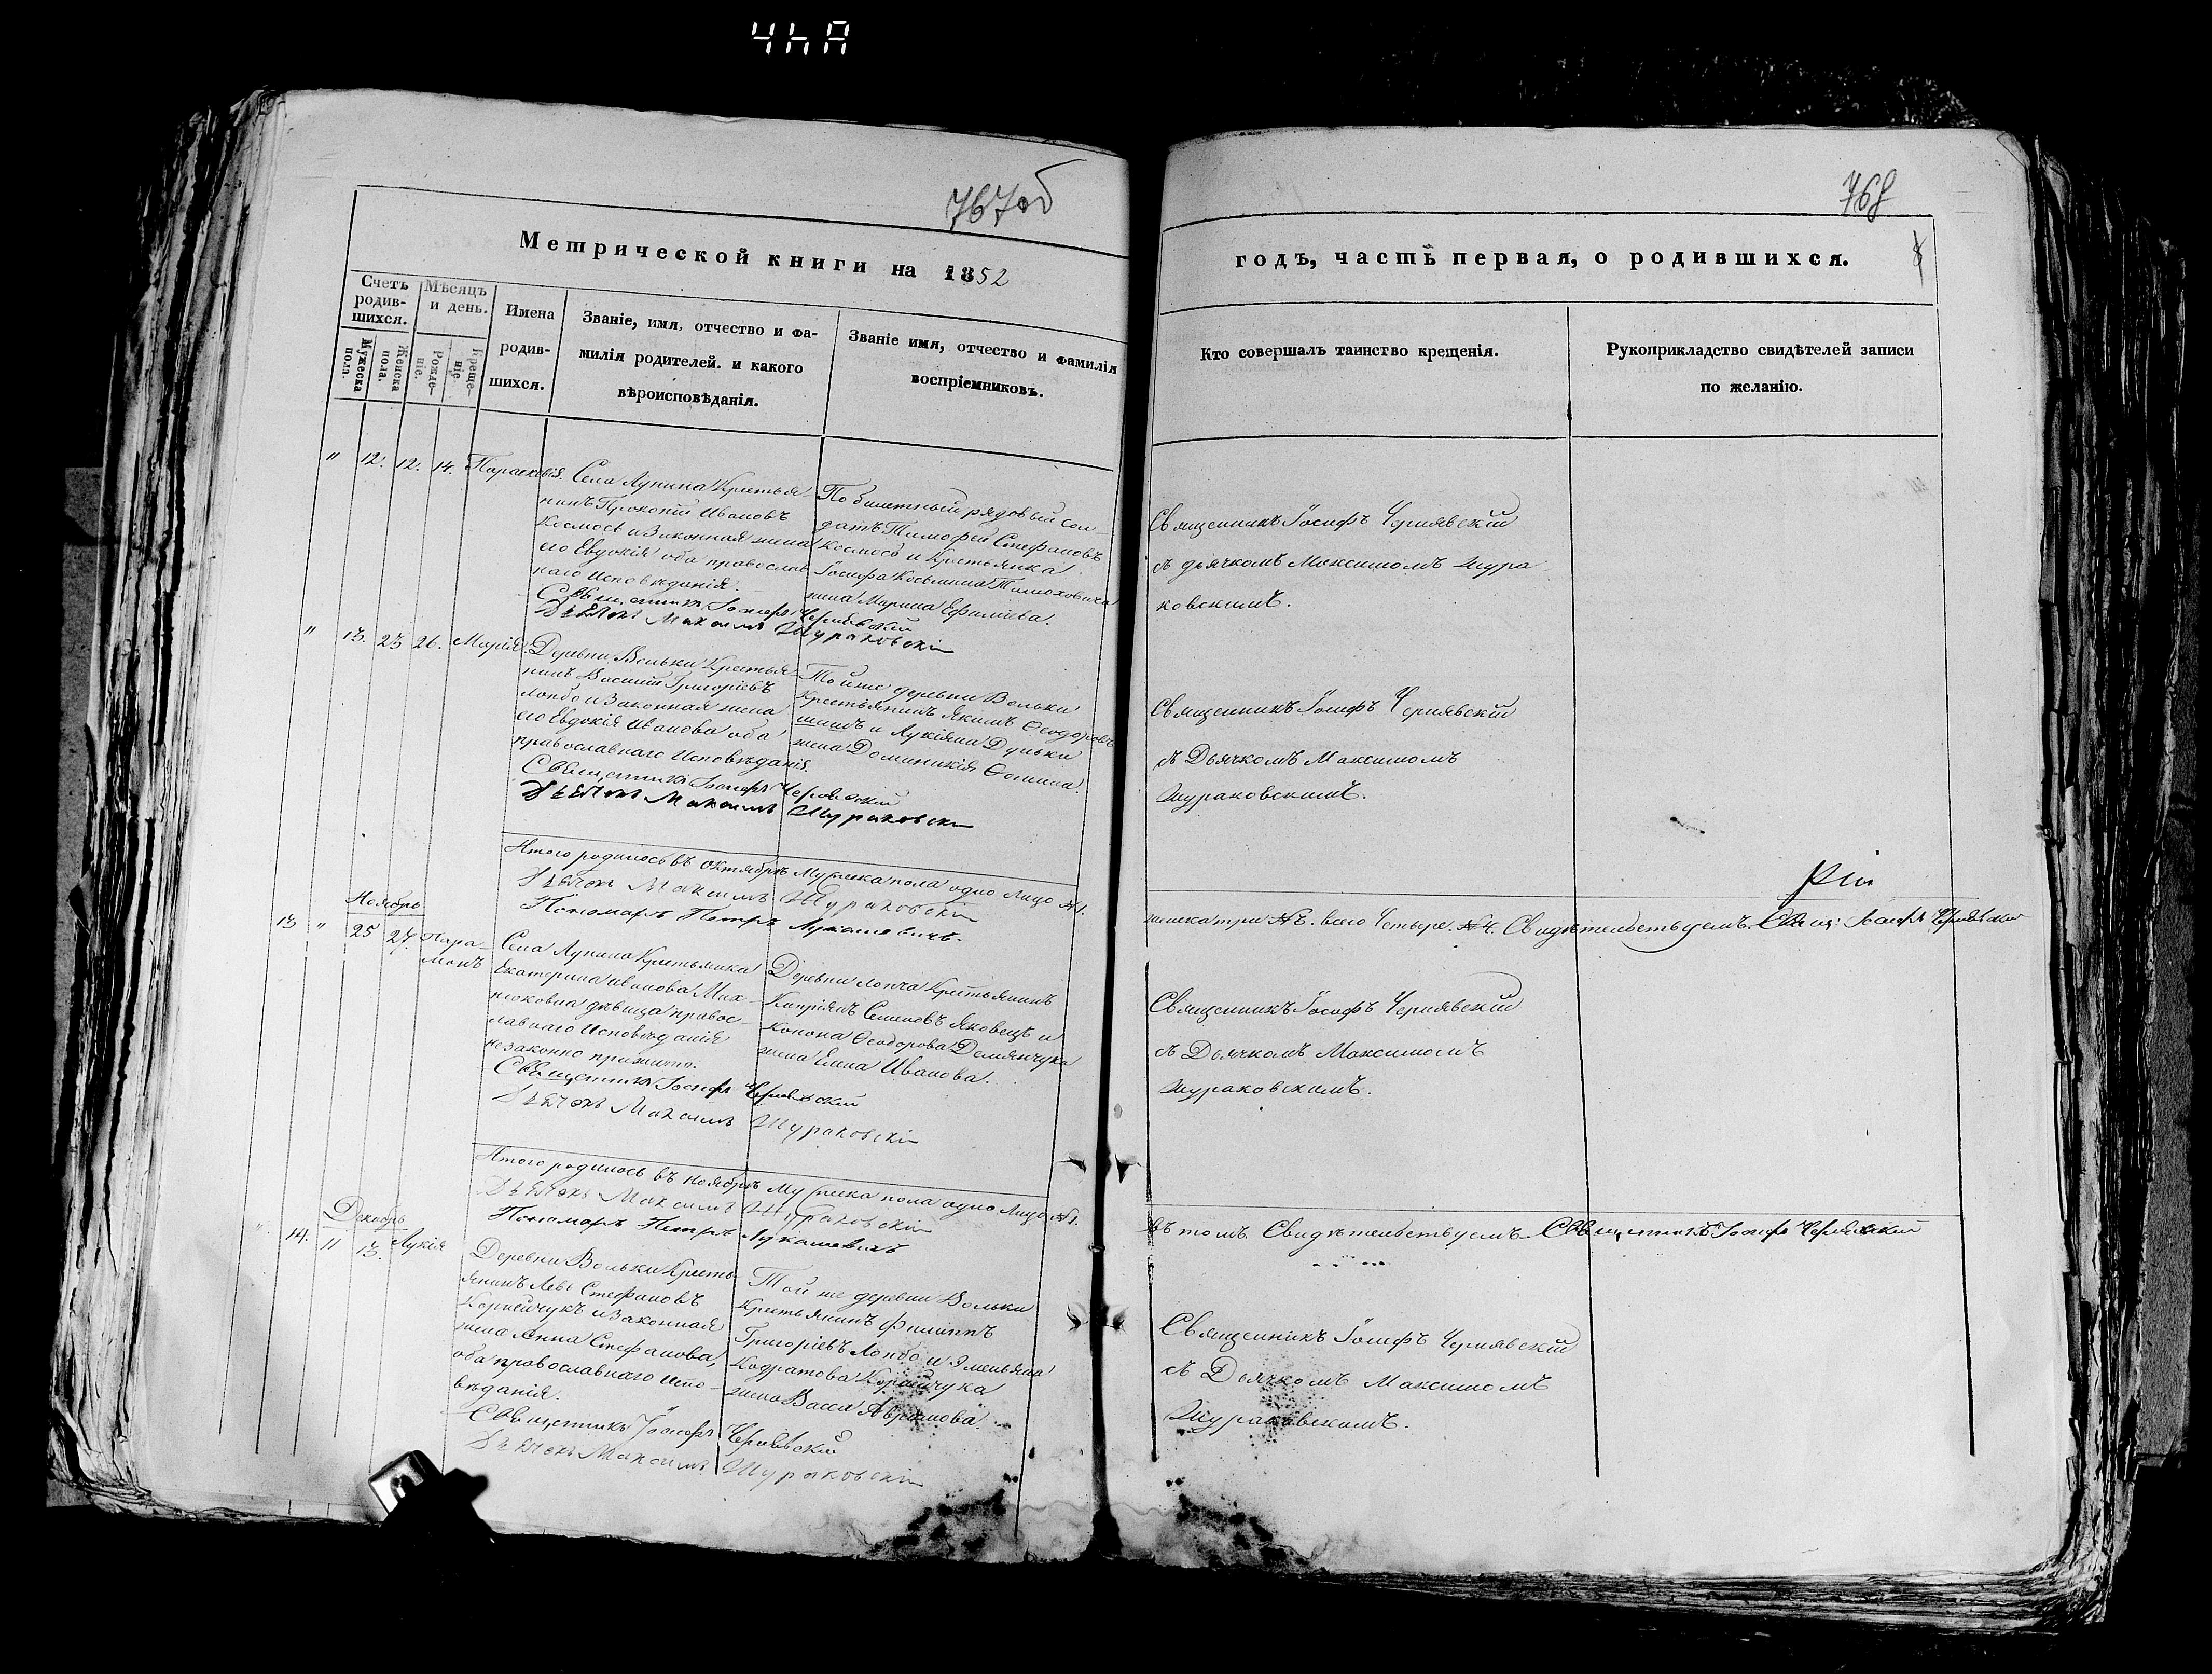 ЧhA
767об
Метрической книги на 1852
Счетъ родив-
шихся.
Мѣсяцъ
и день.
Имена
родив-
шихся.
Званіе, имя, отчество и фа-
милія родителей. и какого
вѣроисповѣданія.
Званіе имя, отчество и фамилія
воспріемниковъ.
Мужеска
пола.
Женска
пола.
Рожде-
ніе.
Креще-
ніе
" 12. 12. 14. Параскевія.
Села Лунина Крестья-
нинъ Прокопій Ивановъ
Космосъ и Законная жена
его Евдокія оба православ
наго Исповѣданія.
Священникъ Іосифъ Чернявскій
Дьячокъ Максимъ Шураковскій
По билетный рядовый сол-
датъ Тимофей Стефановъ
Космосъ и Крестьянка
Іосифа Косьмина Тимоховича
жена Марина Ефимова.
" 13. 23 26. Марія.
Деревни Вольки Крестья-
нинъ Василій Григоріевъ
Лопбо и Законная жена
его Евдокія Иванова оба
православнаго Исповѣданія.
Священникъ Іосифъ Чернявскій
Дьячокъ Максимъ Шураковскій
Той же деревни Вольки
Крестьянинъ Якимъ Ѳеодоровъ
и Лукіяна Дунька
жена Доминикія Ѳомина.
Итого родилось въ Октябрѣ Мужеска пола одно лицо №1.
Дьячокъ Максимъ Шураковскій
Пономарь Петръ Лукашевичъ.
Ноябрь
13 " 25 27. Пара-
монъ
Села Лунина Крестьянка
Екатерина Иванова Мих-
нюковна дѣвица правос-
лавнаго Исповѣданія
незаконно прижито.
Священникъ Іосифъ Чернявскій
Дьячокъ Максимъ Шураковскій
Деревни Лопча Крестьянинъ
Капріянъ Семеновъ Яковецъ и
Конона Ѳеодорова Демянчука
жена Елена Иванова.
Итого родилось въ Ноябрѣ Мужеска пола одно лицо №1.
Дьячокъ Максимъ Шураковскій
Пономарь Петръ Лукашевичъ
Декабрь
" 14. 11 13. Лукія
Деревни Вольки Кресть-
янинъ Левъ Стефановъ
Корнейчукъ и Законная
жена Анна Стефанова,
оба православнаго Испо-
вѣданія.
Священникъ Іосифъ Чернявскій
Дьячокъ Максимъ Шураковскій
Той же деревни Вольки
Крестьянинъ Филиппъ
Григоріевъ Лопбо и Емельяна
Кодратова Корнейчука
жена Васса Авраамова.
768
годъ, часть первая, о родившихся.
8
Кто совершалъ таинство крещенія.
Рукоприкладство свидѣтелей записи
по желанію.
Священникъ Іосифъ Чернявскій
съ дьячкомъ Максимомъ Шура
ковскимъ.
Священникъ Іосифъ Чернявскій
съ Дьячкомъ Максимомъ
Шураковскимъ.
женска три №3. всего Четыре. №4. Свидѣтельствуемъ. Свящ: Іосифъ Чернявскій
Священникъ Іосифъ Чернявскій
съ Дьячкомъ Максимомъ
Шураковскимъ.
въ томъ Свидѣтельствуемъ. Священникъ Іосифъ Чернявскій
Священникъ Іосифъ Чернявскій
съ Дьячкомъ Максимомъ
Шураковскимъ.